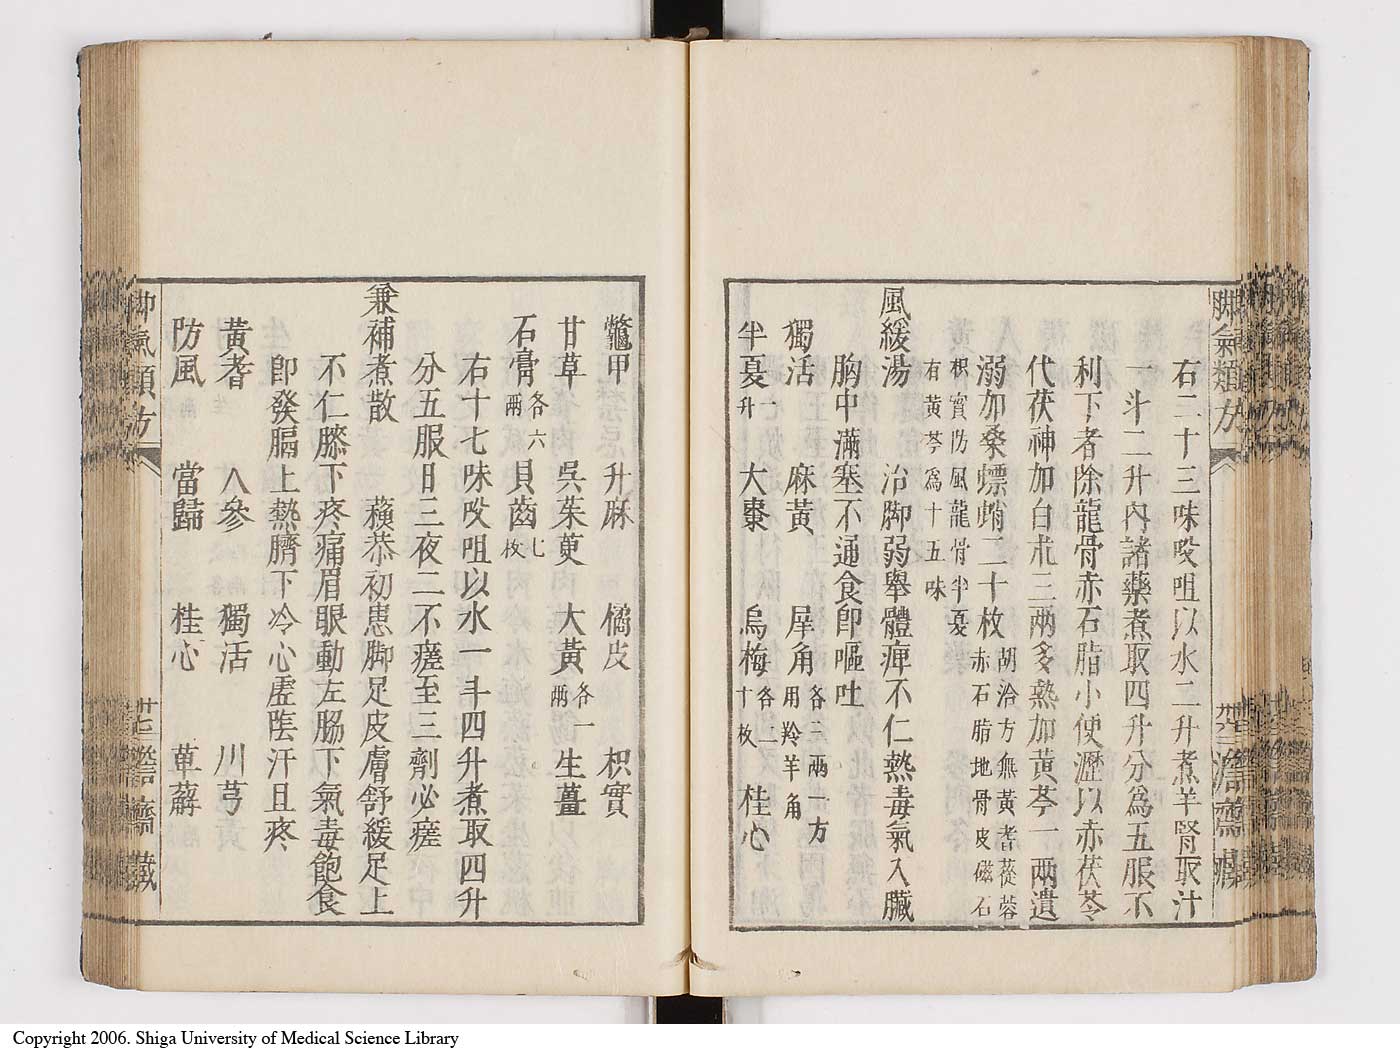 右二十三味㕮咀以水二升煮羊腎取汁
一斗二升內諸藥煮取四升分為五服不
利下者除龍骨赤石脂小便瀝以赤茯苓
代茯神加白朮三兩多熱加黃芩一兩遺
溺加桑螵蛸二十枚胡洽方無黃耆蓯蓉赤石脂地骨皮磁石
枳實防風龍骨半夏有黃芩為十五味
風緩湯 治脚弱舉體痺不仁熱毒氣入臟
胸中滿塞不通食即嘔吐
獨活 麻黃 犀角各三兩一方用羚羊角
半夏一升 大棗 烏梅各二十枚 桂心
鱉甲 升麻 橘皮 枳實
甘草 吳茱萸 大黃各一兩 生薑
石膏各六兩 貝齒七枚
右十七味㕮咀以水一斗四升煮取四升
分五服日三夜二不瘥至三劑必瘥
兼補煮散 蘇恭初患脚足皮膚舒緩足上
不仁膝下疼痛眉眼動左肠下氣毒飽食
即發膈上熱臍下冷心虛陰汗且疼
黃耆 人參 獨活 川芎
防風 當歸 桂心 萆薢
脚氣類方
脚氣類方
Copyright 2006. Shiga University of Medical Science Library